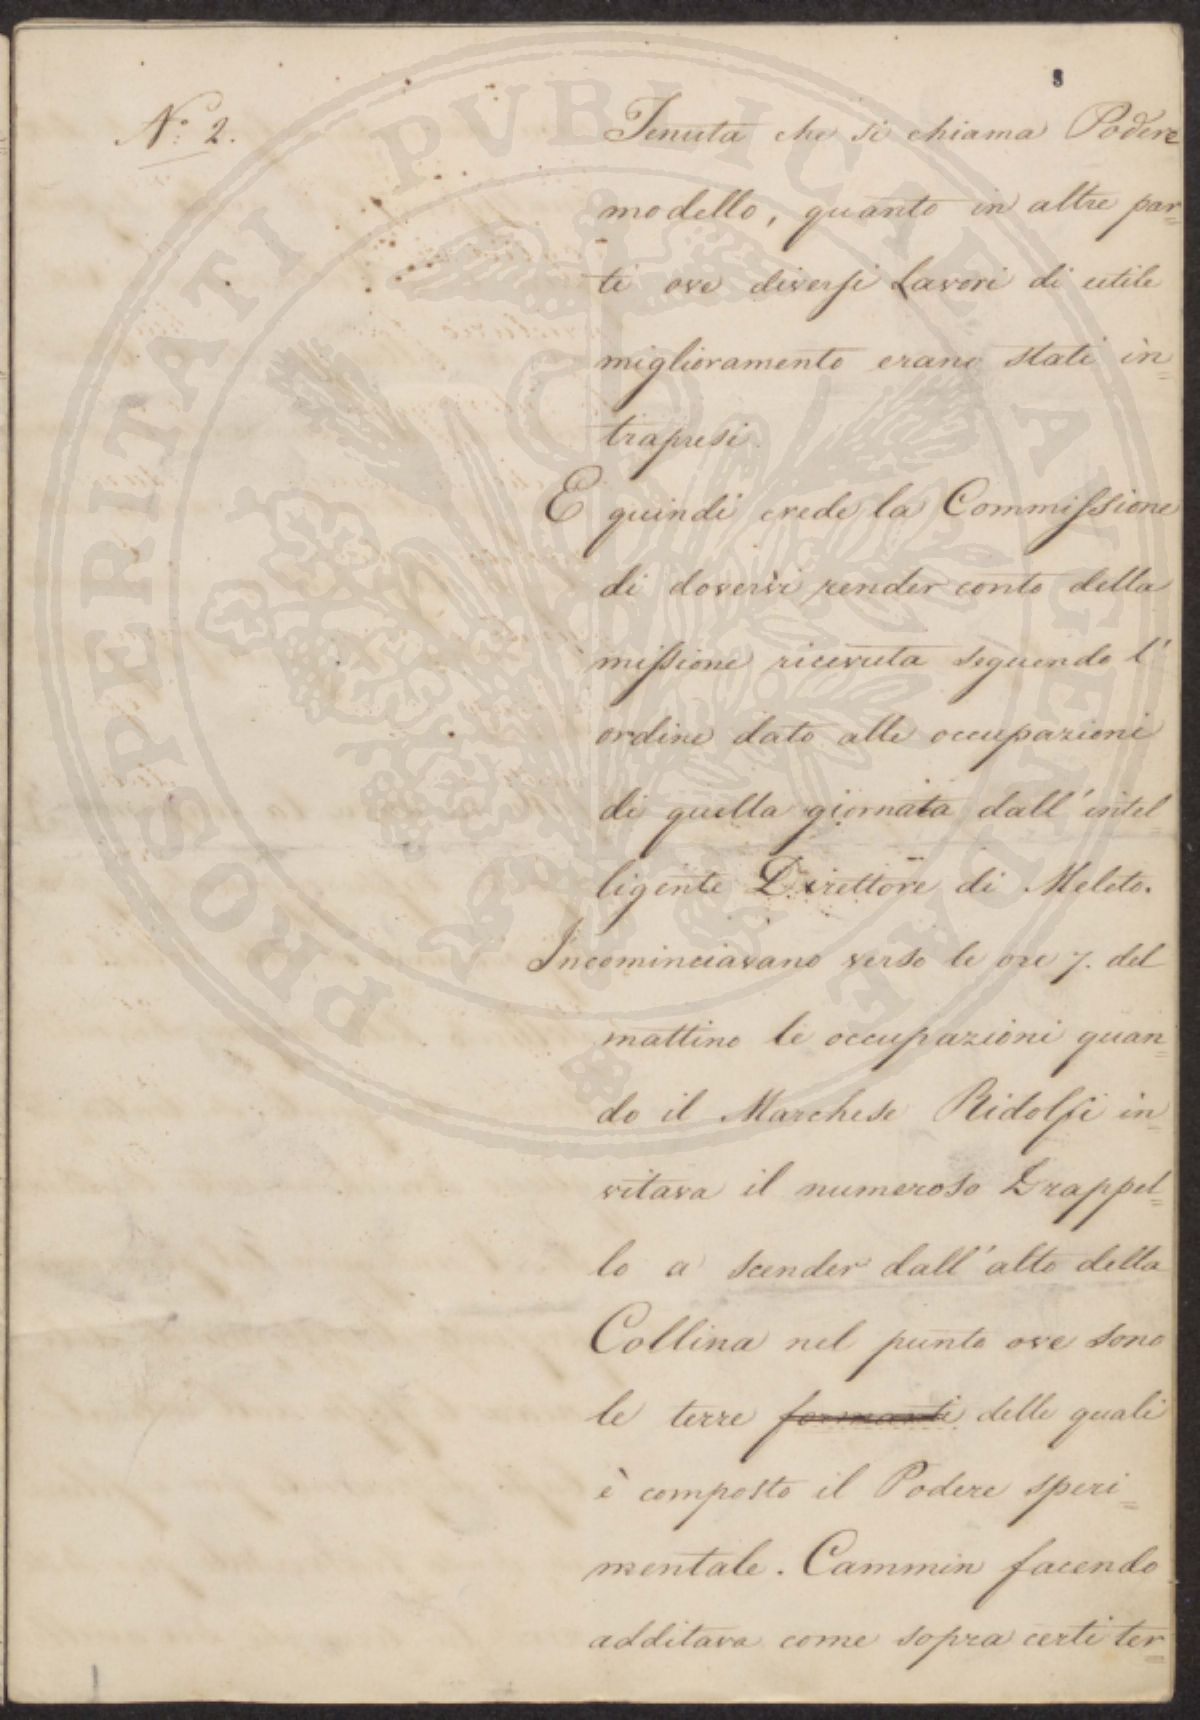 8
N.° 2.
Tenuta che si chiama Podere
modello, quanto in altre par=
ti ove diversi Lavori di utile
miglioramento erano stati in=
trapresi.
E quindi crede la Commissione
di doversi render conto della
missione ricevuta seguendo l'
ordine dato alle occupazioni
di quella giornata dall'intel=
ligente Direttore di Meleto.
Incominciavano verso le ore 7. del
mattino le occupazioni quan=
do il Marchese Ridolfi in=
vitava il numeroso Drappel=
lo a scender dall'alto della
Collina nel punto ove sono
le terre formanti delle quali
è composto il Podere speri=
mentale. Cammin facendo
additava come sopra certi ter=
PROSPERITATI PVBLICAE AVGENDAE